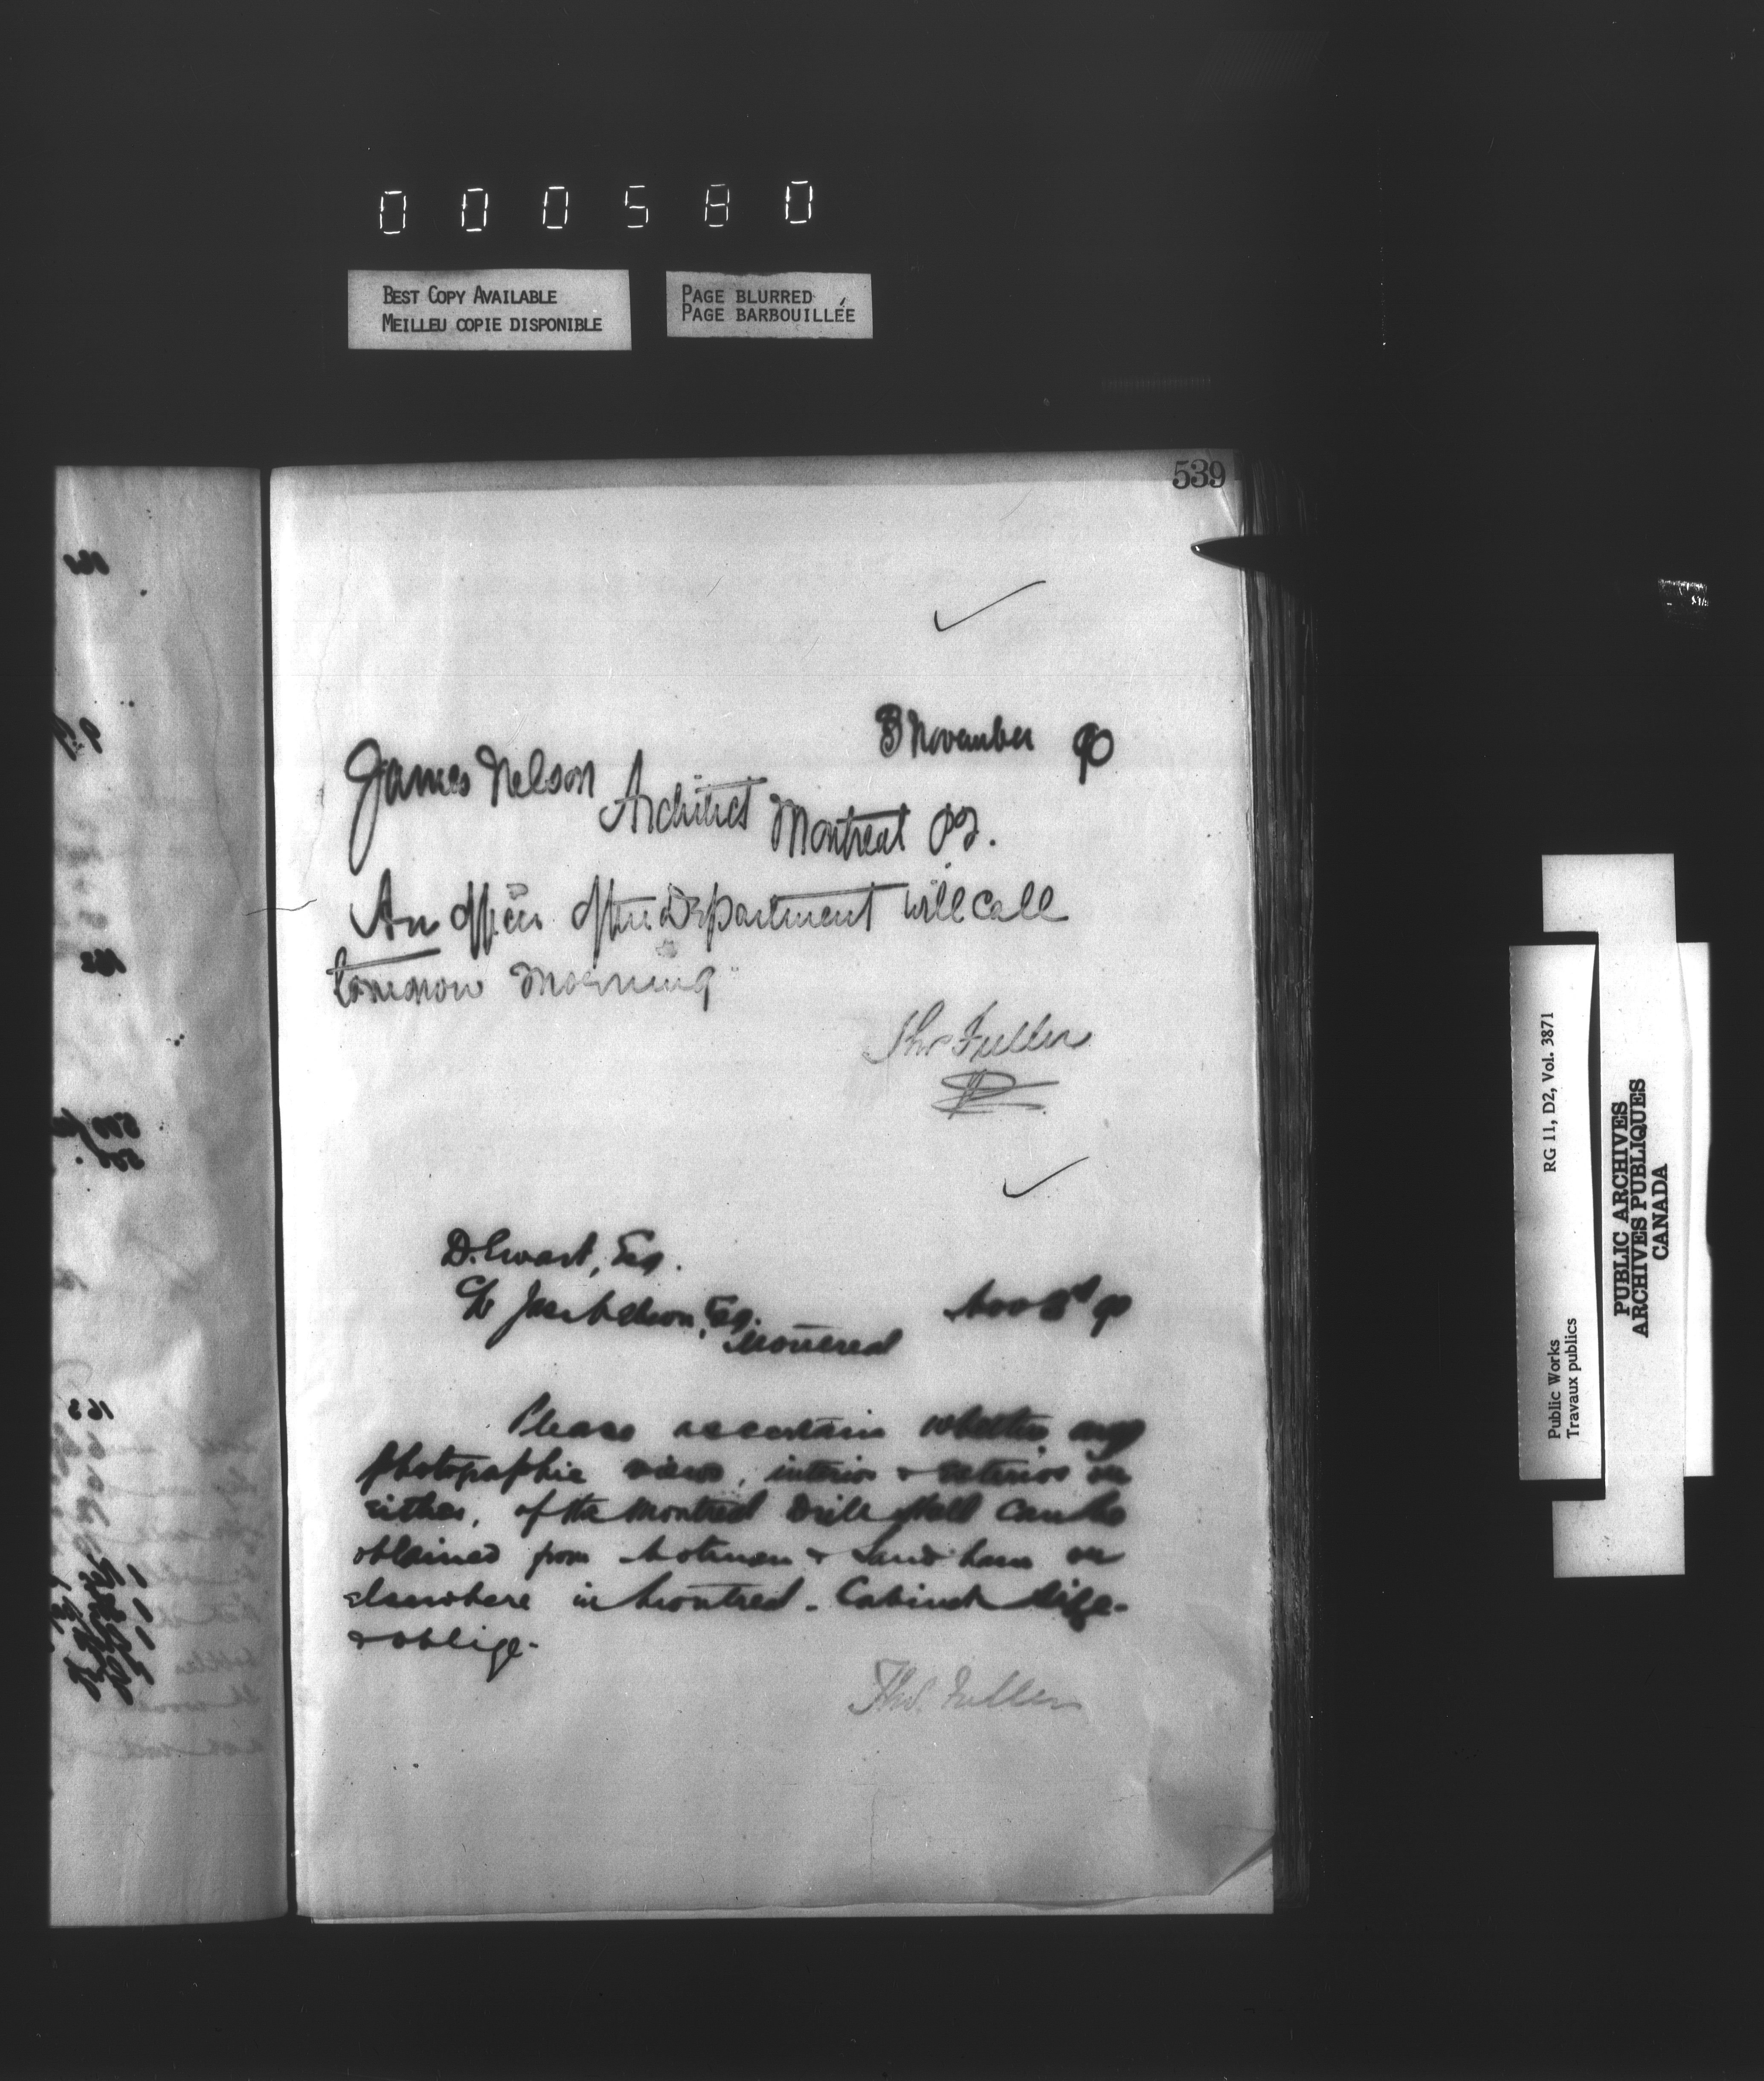 000580
BEST COPY AVAILABLE
MEILLEU COPIE DISPONIBLE
PAGE BLURRED
PAGE BARBOUILLÉE
539
3 November 90
James Nelson Architect Montreal PQ.
An officer of the Department will call
tomorrow morning
Thos Fuller
D. Ewart, Esq.
C/o Jas Nelson, Esq.
Montreal
Nov 3rd 90
Please ascertain whether any
photographic views, interior & exterior or
either, of the Montreal Drill Hall can be
obtained from Notman & Sandham or
elsewhere in Montreal. Cabinet size.
& oblige.
Thos. Fuller
Public Works
Travaux publics
RG 11, D2, Vol. 3871
PUBLIC ARCHIVES
ARCHIVES PUBLIQUES
CANADA